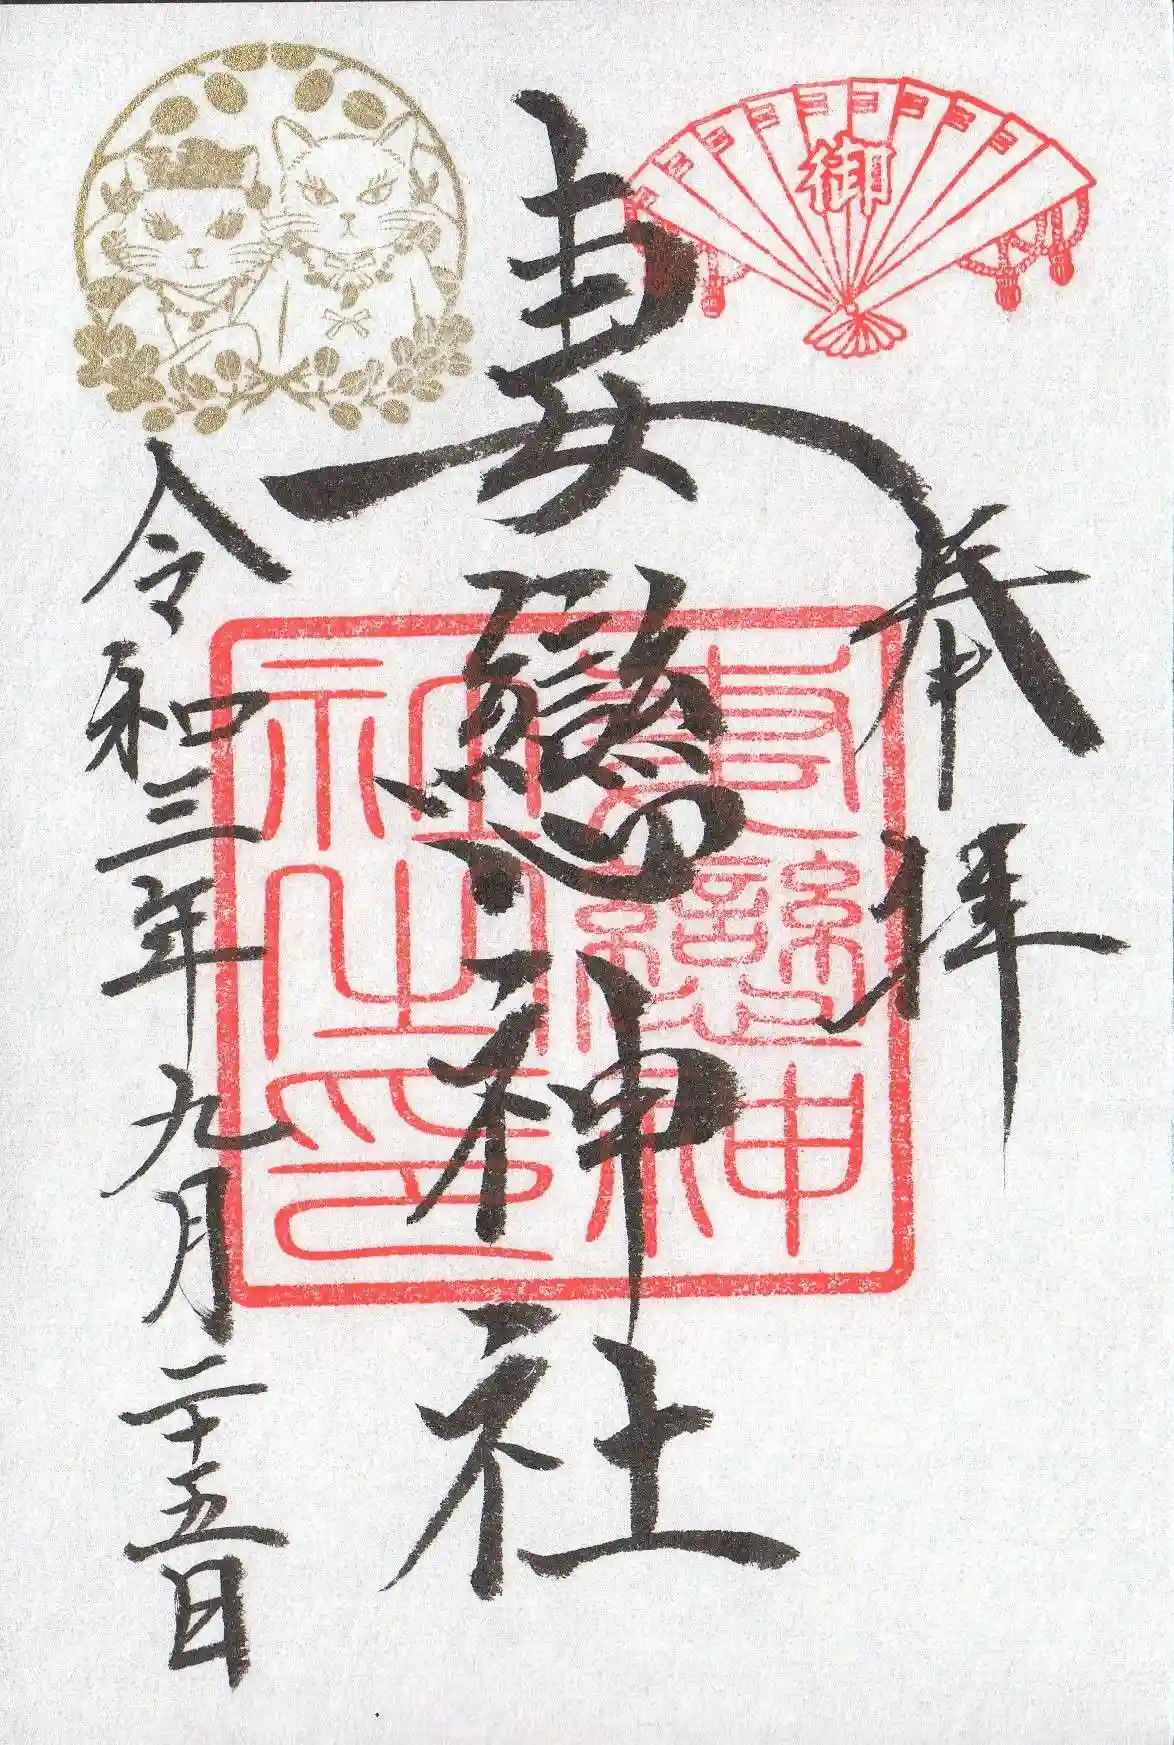 奉拝
御
妻戀神社
妻戀神
社之印
令和三年九月二十五日